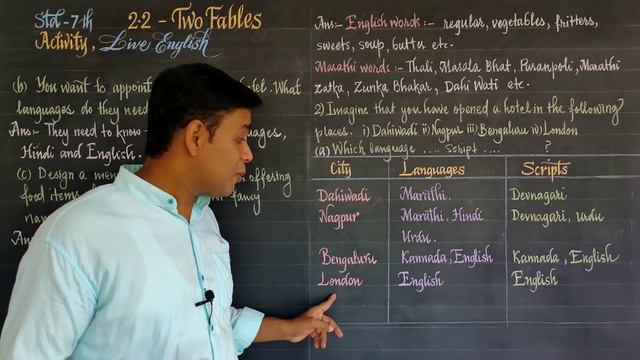 Std-7th 2.2 - Two Fables
Activity, Live English
(b) You want to appoint What
languages do they need
Ans:- They need to know
Hindi and English.
(c) Design a offering
food items fancy
Ans:- English words:- regular, vegetables, fritters,
sweets, soup, butter etc.
Marathi word:- Thali, Masala Bhat, Puranpoli, Marathi
Zatka, Zunka Bhakar, Dahi Wati etc.
2) Imagine that you have opened a hotel in the following
places. i) Dahiwadi ii) Nagpur iii) Bengaluru iv) London
(a) Which language .... Script .... ?
City Languages Scripts
Dahiwadi Marathi. Devnagari
Nagpur Marathi. Hindi Devnagari, Urdu
Urdu.
Bengaluru Kannada, English Kannada, English
London English English